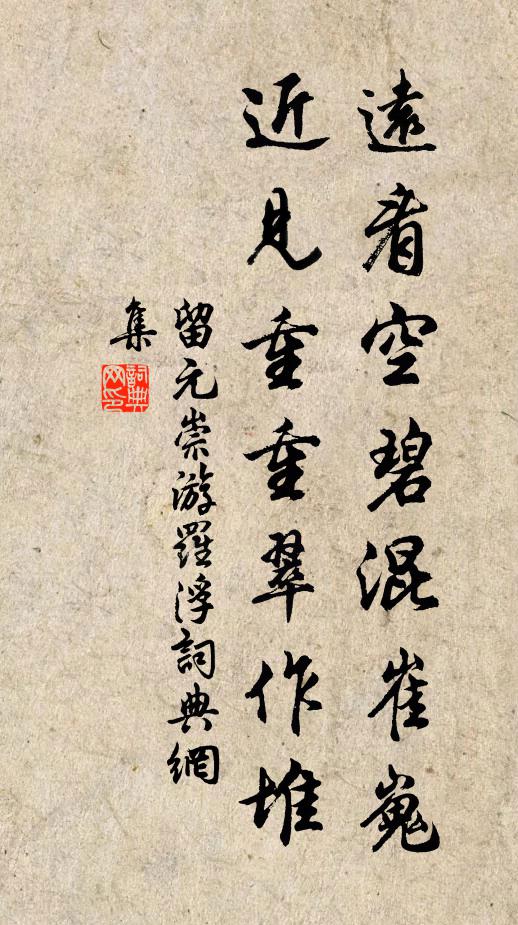 遠看空碧混崔嵬
近見重重翠作堆
留元崇游羅浮詞典網
集
詞典
网印